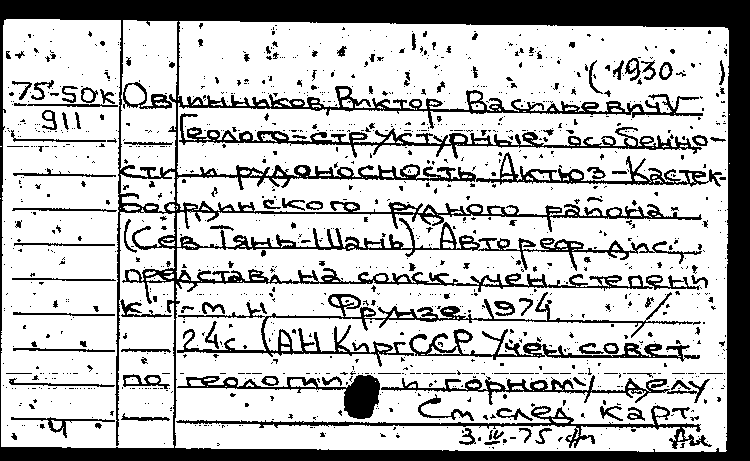 (1930 )
75-50к Овчинников, Виктор Васильевич
911
Геолого-структурные особенно-
сти и рудоносность Актюз-Кастек-
Боординского рудного района.
(Сев. Тянь-Шань). Автореф. дис.,
представл. на соиск. учен. степени
к. г.-м. н. Фрунзе, 1974.
24с. (АН КиргССР. Учен. совет
по геологии и горному делу
См. след. карт.
Ч
3.IV.-75.